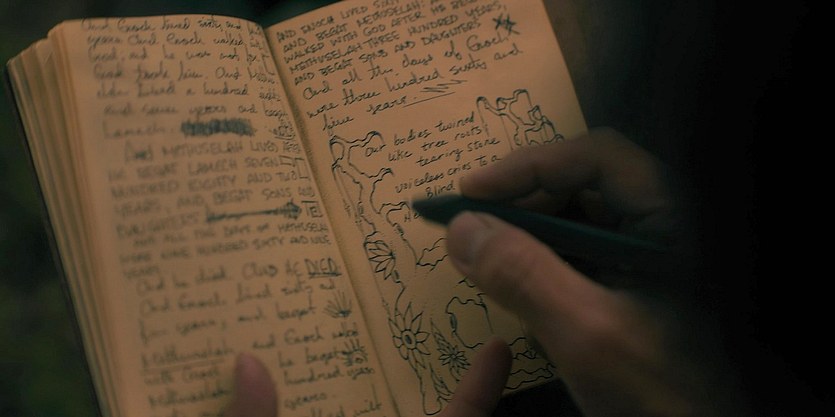 And Enoch lived sixty and
years And Enoch walked
God, and he was not for
God took him. And
lived a hundred
and seven years and
Lamech
And METHUSELAH LIVED
HE BEGAT LAMECH SEVEN
HUNDRED EIGHTY AND TWO
YEARS, AND BEGAT SONS AND
DAUGHTERS
AND ALL THE DAYS OF METHUSELA
WERE NINE HUNDRED SIXTY AND NINE
YEARS
And he died. AND HE DIED
And Enoch lived sixty and
five years, and begat
Methuselah and Enoch walked
with God he begat
Methuselah hundred years
years.
AND ENOCH LIVED
AND BEGAT METHUSELAH: AND
WALKED WITH GOD AFTER HE BEGAT
METHUSELAH THREE HUNDRED YEARS,
AND BEGAT SONS AND DAUGHTERS
And all the days of Enoch
were three hundred sixty and
five years.
Our bodies twined
like tree roots
tearing stone
voiceless cries to a
Blind